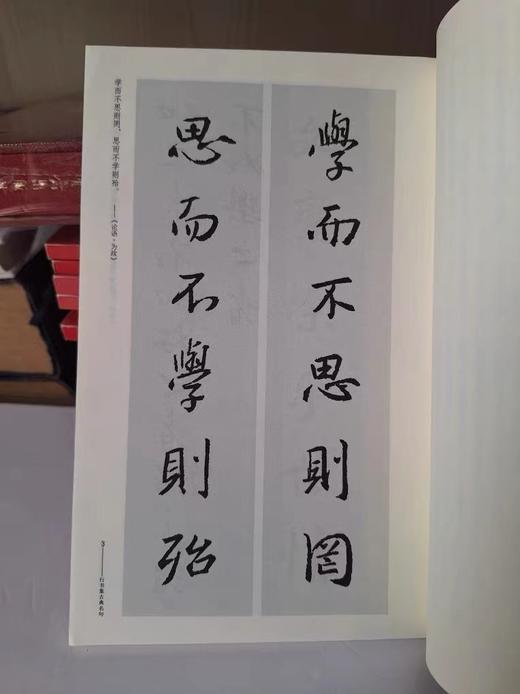 學而不思則罔
思而不學則殆
学而不思则罔，思而不学则殆。
——《论语·为政》
3——行书集古典名句